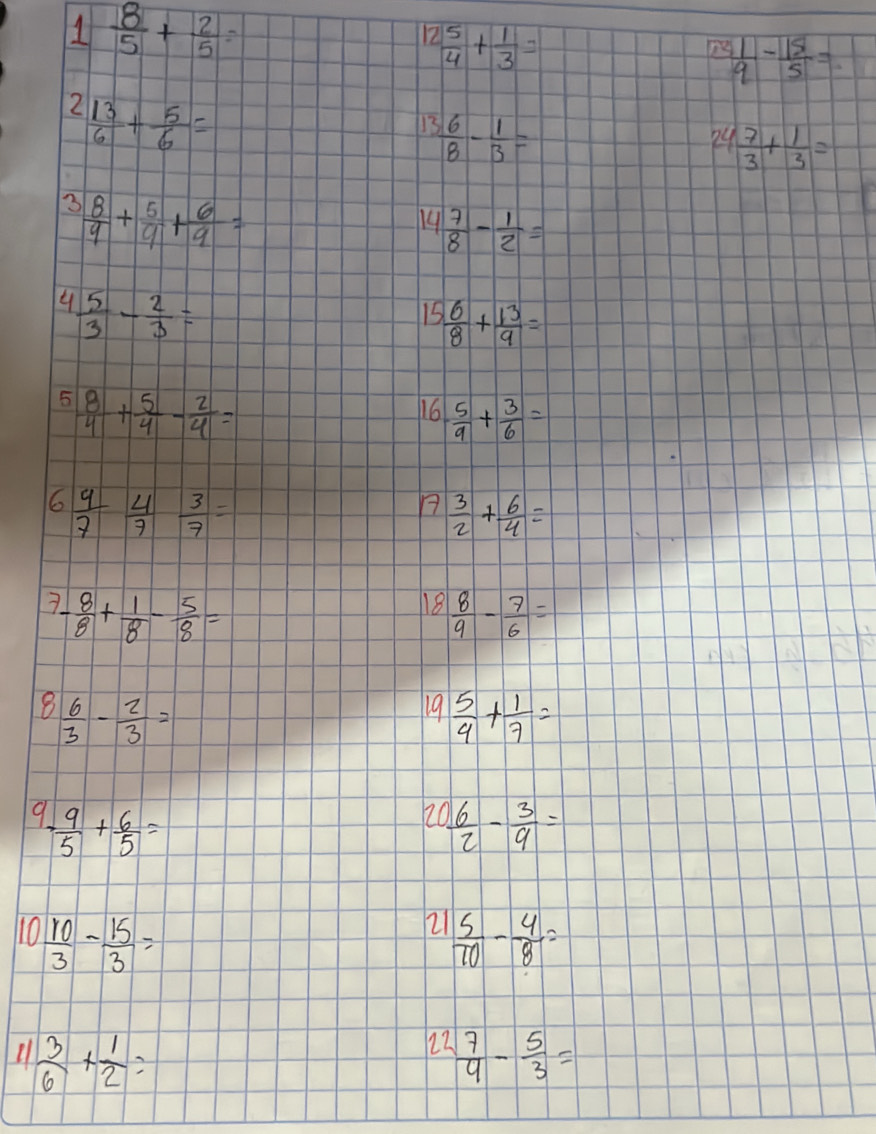 1 8/5 + 2/5 =
2 13/6 + 5/6 =
3 8/9 + 5/9 + 6/9 =
4 5/3 - 2/3 =
5 8/4 + 5/4 - 2/4 =
6 9/7 4/7 3/7 =
7 -8/8 + 1/8 - 5/8 =
8 6/3 - 2/3 =
9 -9/5 + 6/5 =
10 10/3 - 15/3 =
11 3/6 + 1/2 =
12 5/4 + 1/3 =
13 6/8 - 1/3 =
14 7/8 - 1/2 =
15 6/8 + 13/9 =
16 5/9 + 3/6 =
17 3/2 + 6/4 =
18 8/9 - 7/6 =
19 5/9 + 1/7 =
20 6/2 - 3/9 =
21 5/10 - 4/8 =
22 7/9 - 5/3 =
23 1/9 - 15/5 =
24 7/3 + 1/3 =